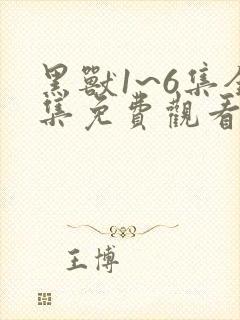 黑獸1~6集全
集免費觀看
王博